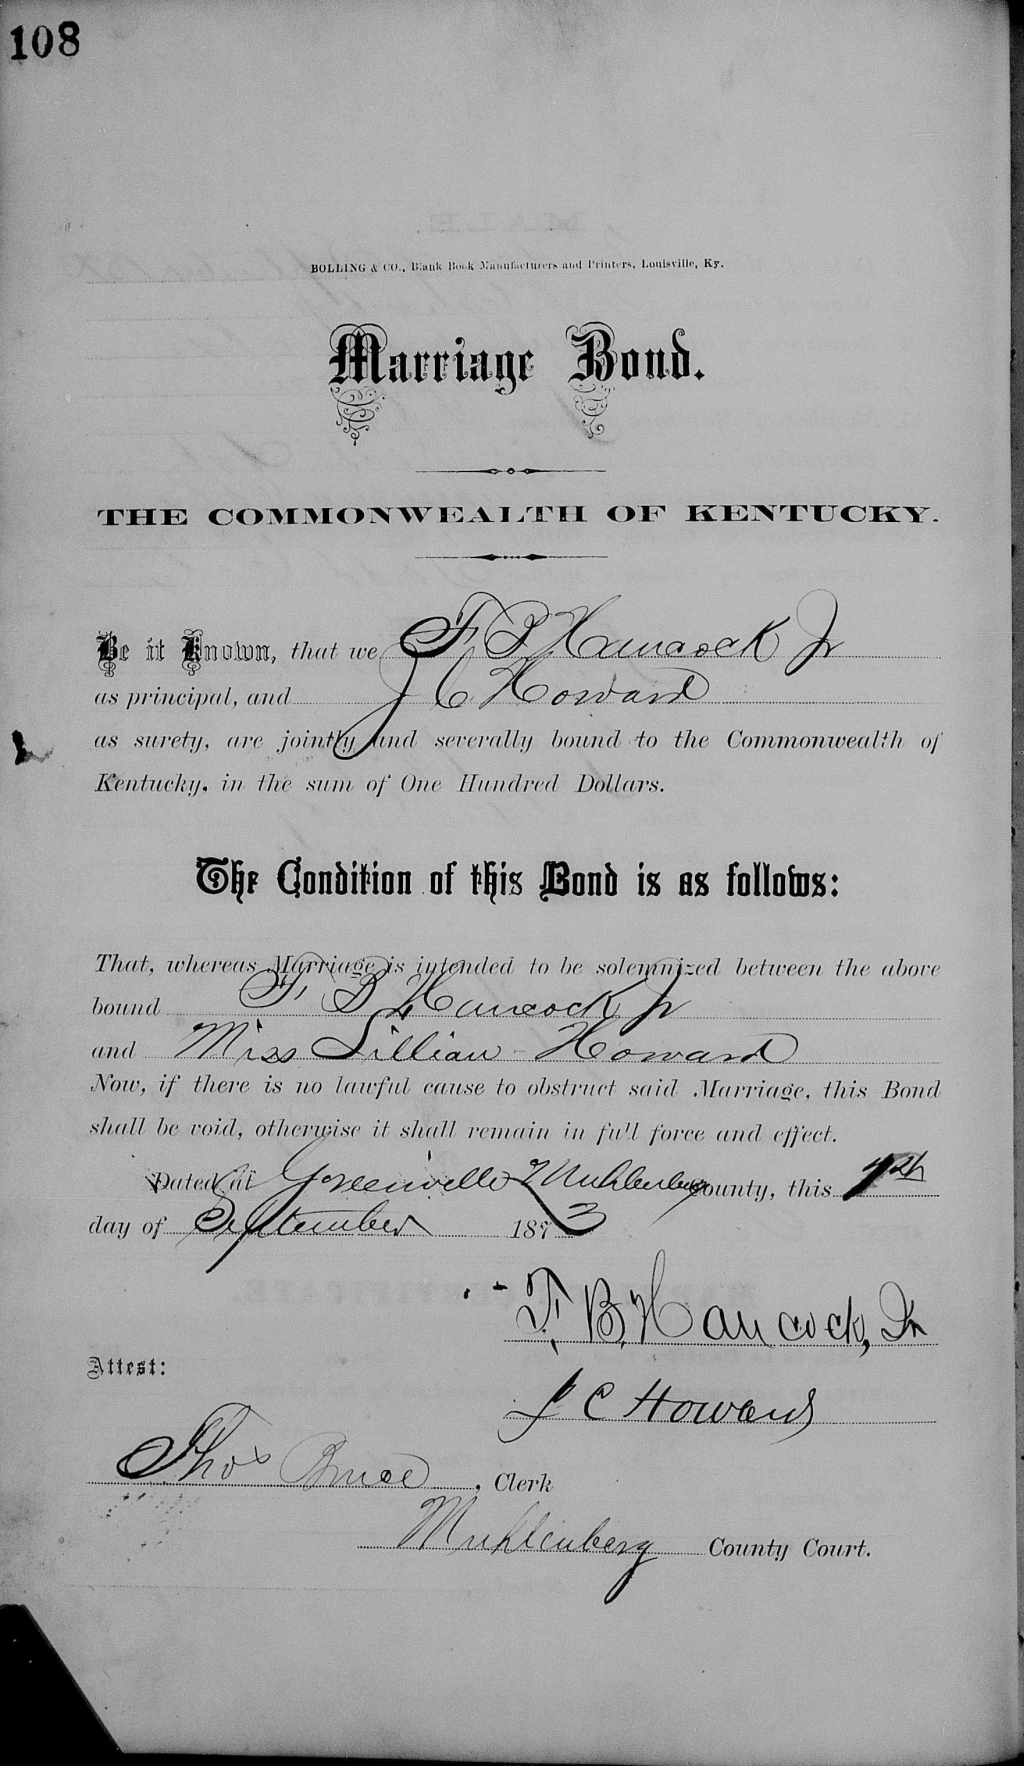 108
BOLLING & CO., Blank Book Manufacturers and Printers, Louisville, Ky.
Marriage Bond.
THE COMMONWEALTH OF KENTUCKY.
Be it Known, that we F B Hancock Jr
as principal, and J C Howard
as surety, are jointly and severally bound to the Commonwealth of
Kentucky, in the sum of One Hundred Dollars.
The Condition of this Bond is as follows:
That, whereas Marriage is intended to be solemnized between the above
bound F B Hancock Jr
and Miss Lillian Howard
Now, if there is no lawful cause to obstruct said Marriage, this Bond
shall be void, otherwise it shall remain in full force and effect.
Dated at Greenville Muhlenberg County, this
day of September 1893
F. B. Hancock, Jr
Attest:
J C Howard
Thos Bruce, Clerk
Muhlenberg County Court.